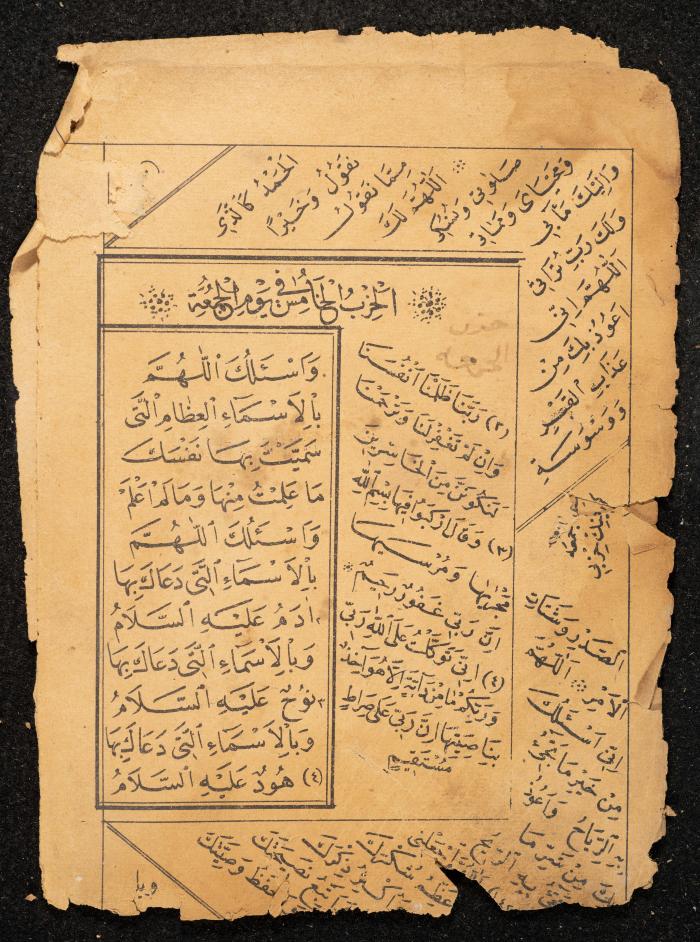 الحزب الخامس في يوم الجمعة
وَاَسْئَلُكَ اللّٰهُمَّ
بِالْاَسْمَاءِ الْعِظَامِ الَّتِى
سَمَّيْتَ بِهَا نَفْسَكَ
مَا عَلِمْتُ مِنْهَا وَمَا لَمْ اَعْلَمْ
وَاَسْئَلُكَ اللّٰهُمَّ
بِالْاَسْمَاءِ الَّتِى دَعَاكَ بِهَا
اٰدَمُ عَلَيْهِ السَّلَامُ
وَبِالْاَسْمَاءِ الَّتِى دَعَاكَ بِهَا
نُوحٌ عَلَيْهِ السَّلَامُ
وَبِالْاَسْمَاءِ الَّتِى دَعَاكَ بِهَا
(٤) هُودٌ عَلَيْهِ السَّلَامُ
(٢) رَبَّنَا ظَلَمْنَا اَنْفُسَنَا
وَاِنْ لَمْ تَغْفِرْ لَنَا وَتَرْحَمْنَا
لَنَكُونَنَّ مِنَ الْخَاسِرِينَ
(٣) وَقَالَ ارْكَبُوا فِيهَا بِسْمِ اللّٰهِ
مَجْرٰيهَا وَمُرْسٰيهَا
اِنَّ رَبِّى غَفُورٌ رَحِيمٌ
(٤) اِنِّى تَوَكَّلْتُ عَلَى اللّٰهِ رَبِّى
وَرَبِّكُمْ مَا مِنْ دَابَّةٍ اِلَّا هُوَ اٰخِذٌ
بِنَاصِيَتِهَا اِنَّ رَبِّى عَلٰى صِرَاطٍ
مُسْتَقِيمٍ
الْحَمْدُ كَالَّذِى
نَقُولُ وَخَيْرًا
مِمَّا نَقُولُ
اَللّٰهُمَّ لَكَ
صَلَوتِى وَنُسُكِى
وَمَحْيَاىَ وَمَمَاتِى
وَاِلَيْكَ مَاٰبِى
وَلَكَ رَبِّ تُرَاثِى
اَللّٰهُمَّ اِنِّى
اَعُوذُ بِكَ مِنْ
عَذَابِ الْقَبْرِ
وَوَسْوَسَةِ
الصَّدْرِ وَشَتَاتِ
الْاَمْرِ اَللّٰهُمَّ
اِنِّى اَسْئَلُكَ
مِنْ خَيْرِ مَا تَجِئُ
بِهِ الرِّيَاحُ وَاَعُوذُ
بِكَ مِنْ شَرِّ مَا
تَجِئُ بِهِ الرِّيحُ